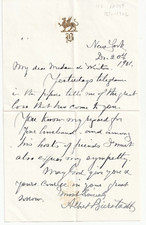 B
New York
1901.
My dear Madam
Yesterdays telegram
in the papers tells me of the great
loss that has come to you.
You know my regard for
your husband, and among
his hosts of friends I must
also express my sympathy
May God give you &
yours courage in your great
sorrow.
Most sincerely
Albert Bierstadt